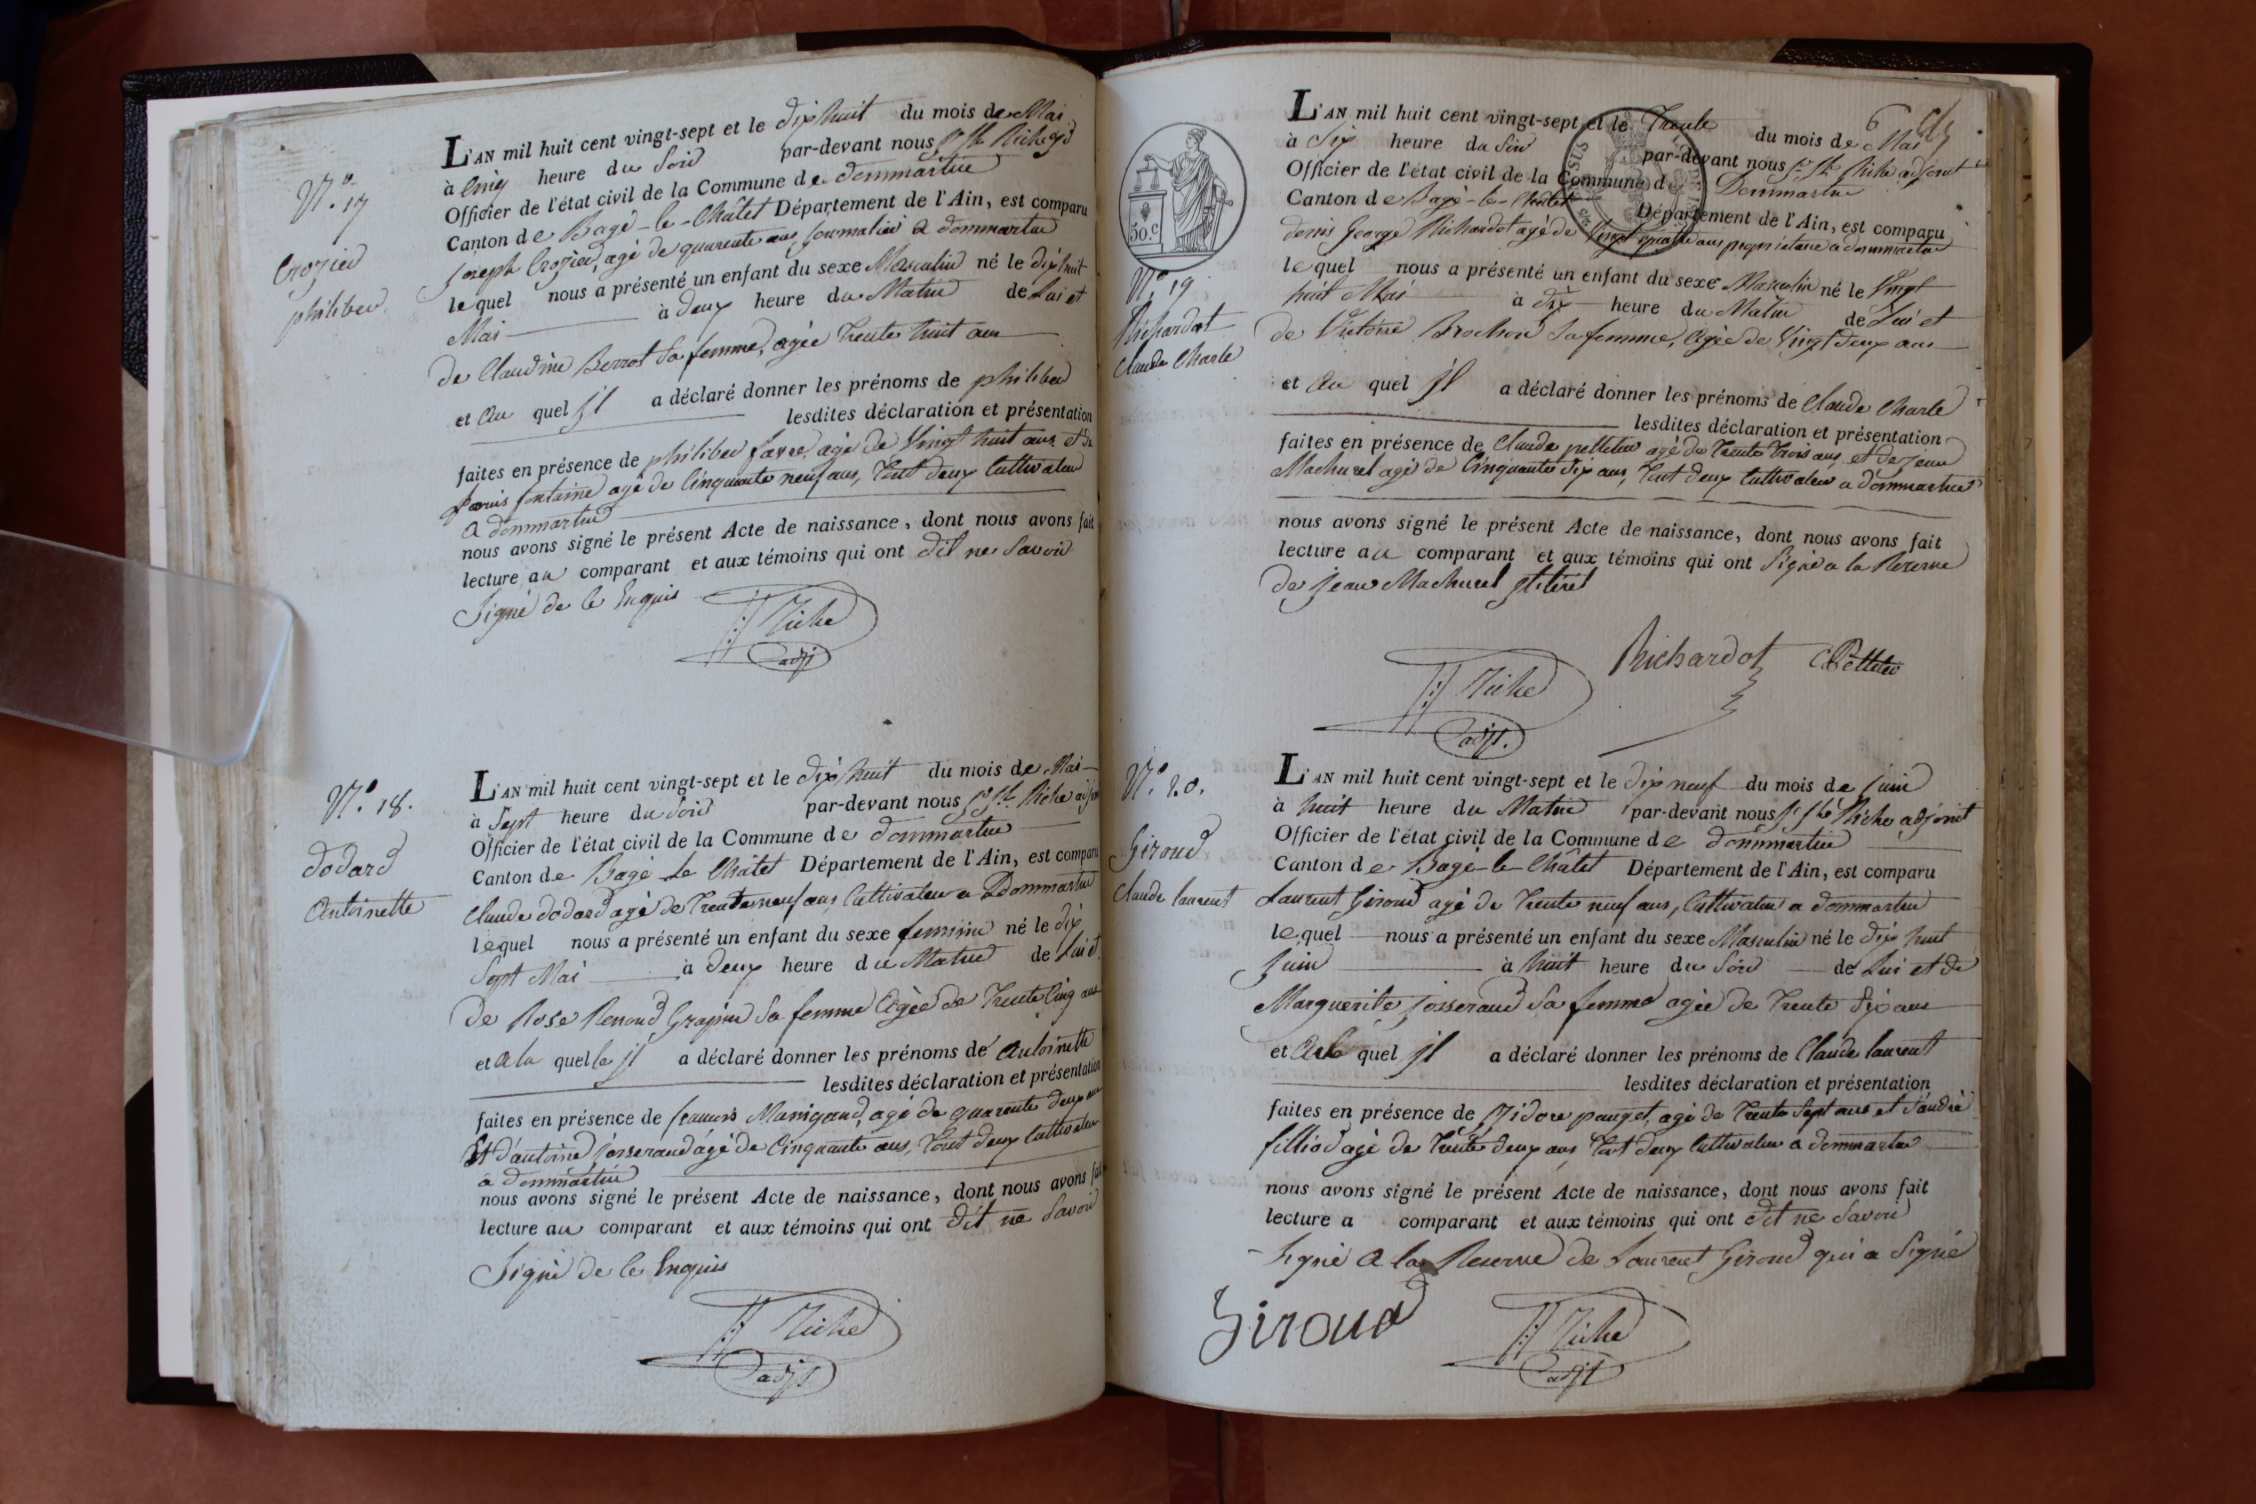 N.º 17
Crozier
philiber
L'AN mil huit cent vingt-sept et le dix huit du mois de Mai
à Cinq heure du Soir par-devant nous Riche
Officier de l'état civil de la Commune de dommartin
Canton de Bagé-le-Châtel Département de l'Ain, est comparu
joseph Crozier, agé de quarente ans journalier a dommartin
lequel nous a présenté un enfant du sexe Masculin né le dix huit
Mai à deux heure du Matin de Lui et
de Claudine Berrot Sa femme, agée trente huit ans
et au quel jl a déclaré donner les prénoms de philiber
lesdites déclaration et présentation
faites en présence de philiber favre, agé de Vingt huit ans, et de
fontaine agé de Cinquante neuf ans, tout deux Cultivateur
a dommartin
nous avons signé le présent Acte de naissance, dont nous avons fait
lecture au comparant et aux témoins qui ont dit ne Savoir
Signé de ce Enquis
Riche
adjt
N.º 18.
dodard
Antoinette
L'AN mil huit cent vingt-sept et le dix huit du mois de Mai
à Sept heure du Soir par-devant nous Riche
Officier de l'état civil de la Commune de dommartin
Canton de Bagé Le Châtel Département de l'Ain, est comparu
Claude dodard agé de Trente neuf ans Cultivateur a Dommartin
lequel nous a présenté un enfant du sexe feminin né le dix
Sept Mai à deux heure du Matin de Lui et
de Rose Renoud Grapin Sa femme Agée de Trente Cinq ans
et a la quelle jl a déclaré donner les prénoms de Antoinette
lesdites déclaration et présentation
faites en présence de francois Manigand, agé de quarente deux ans
Et d'antoine josserand agé de Cinquante ans, tout deux Cultivateur
a dommartin
nous avons signé le présent Acte de naissance, dont nous avons fait
lecture au comparant et aux témoins qui ont dit ne Savoir
Signé de ce Enquis
Riche
adjt
50.C
N.º 19
Richardot
Claude Charle
6
L'AN mil huit cent vingt-sept et le Trente du mois de Mai
à Six heure du Soir par-devant nous Riche adjoint
Officier de l'état civil de la Commune de Dommartin
Canton de Bagé-le-Châtel Département de l'Ain, est comparu
denis George Richardot agé de Vingt quatre ans propriétaire a dommartin
lequel nous a présenté un enfant du sexe Masculin né le Vingt
huit Mai à dix heure du Matin de Lui et
de Victoire Brochon Sa femme, Agée de Vingt deux ans
et au quel jl a déclaré donner les prénoms de Claude Charle
lesdites déclaration et présentation
faites en présence de Claude pelletier agé de Trente Trois ans, et de jean
Machurel agé de Cinquante dix ans, tout deux Cultivateur a dommartin
nous avons signé le présent Acte de naissance, dont nous avons fait
lecture au comparant et aux témoins qui ont Signé a la Reserve
de jean Machurel jlitéré
Richardot
Riche
adjt.
N.º 20.
Giroud
Claude laurent
L'AN mil huit cent vingt-sept et le dix neuf du mois de juin
à huit heure du Matin par-devant nous Riche adjoint
Officier de l'état civil de la Commune de dommartin
Canton de Bagé-le-Châtel Département de l'Ain, est comparu
Laurent Giroud agé de Trente neuf ans, Cultivateur a dommartin
lequel nous a présenté un enfant du sexe Masculin né le dix huit
juin à huit heure du Soir de Lui et de
Marguerite josserand Sa femme agée de Trente dix ans
et quel jl a déclaré donner les prénoms de Claude laurent
lesdites déclaration et présentation
faites en présence de jzidore pauget, agé de Trente Sept ans et d'andré
filliod agé de Trente deux ans tout deux Cultivateur a dommartin
nous avons signé le présent Acte de naissance, dont nous avons fait
lecture a comparant et aux témoins qui ont dit ne Savoir
Signé A la Reserve de Laurent Giroud qui a Signé
Giroud
Riche
adjt